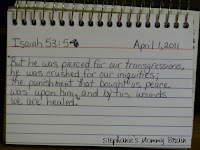 Isaiah 53:5
April 1, 2011
"But he was pierced for our transgressions,
he was crushed for our iniquities;
the punishment that bought us peace
was upon him, and by his wounds
we are healed."
Stephanie's Mommy Brain